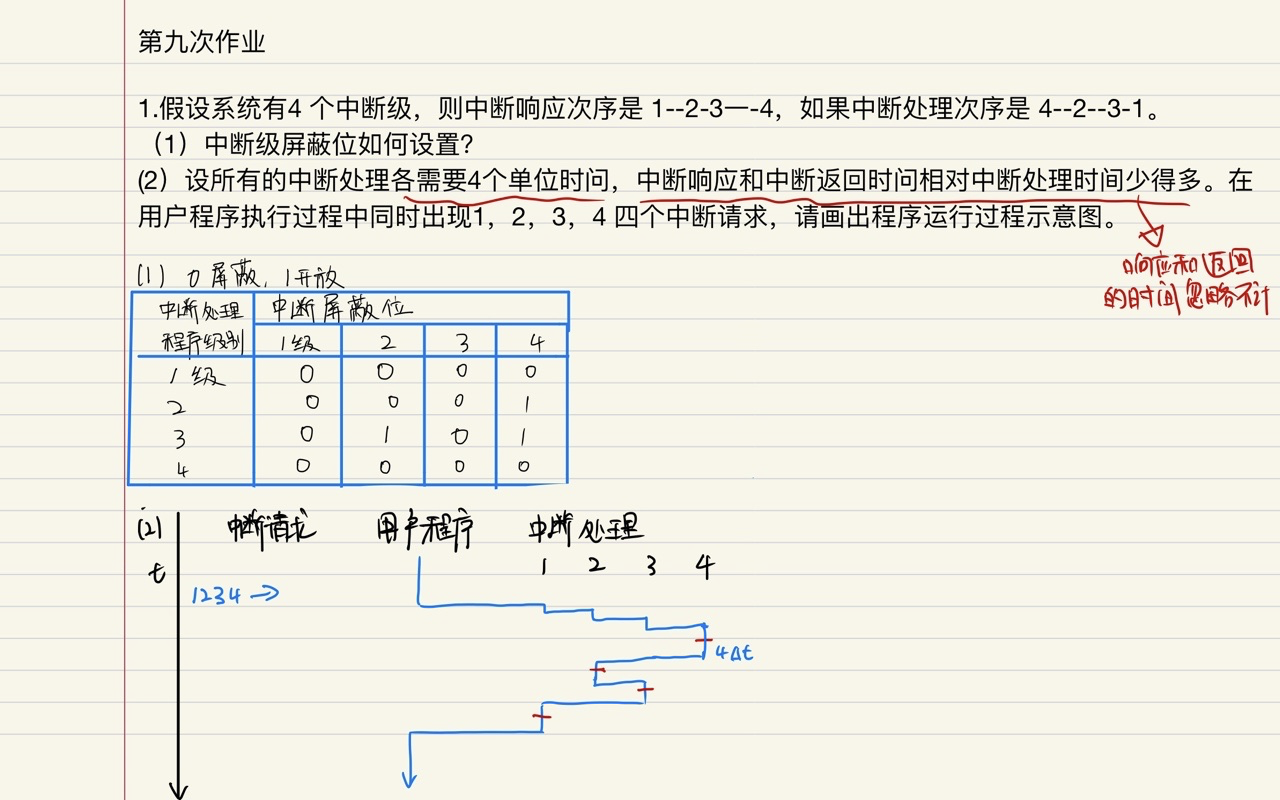 第九次作业
1.假设系统有4 个中断级，则中断响应次序是 1--2-3一--4，如果中断处理次序是 4--2--3-1。
（1）中断级屏蔽位如何设置？
(2）设所有的中断处理各需要4个单位时间，中断响应和中断返回时间相对中断处理时间少得多。在
用户程序执行过程中同时出现1，2，3，4 四个中断请求，请画出程序运行过程示意图。
响应和返回
的时间忽略不计
(1) 0屏蔽，1开放
中断处理 中断屏蔽位
程序级别 1级 2 3 4
1级 0 0 0 0
2 0 0 0 1
3 0 1 0 1
4 0 0 0 0
(2) 中断请求 用户程序 中断处理
t 1 2 3 4
1234 →
4Δt